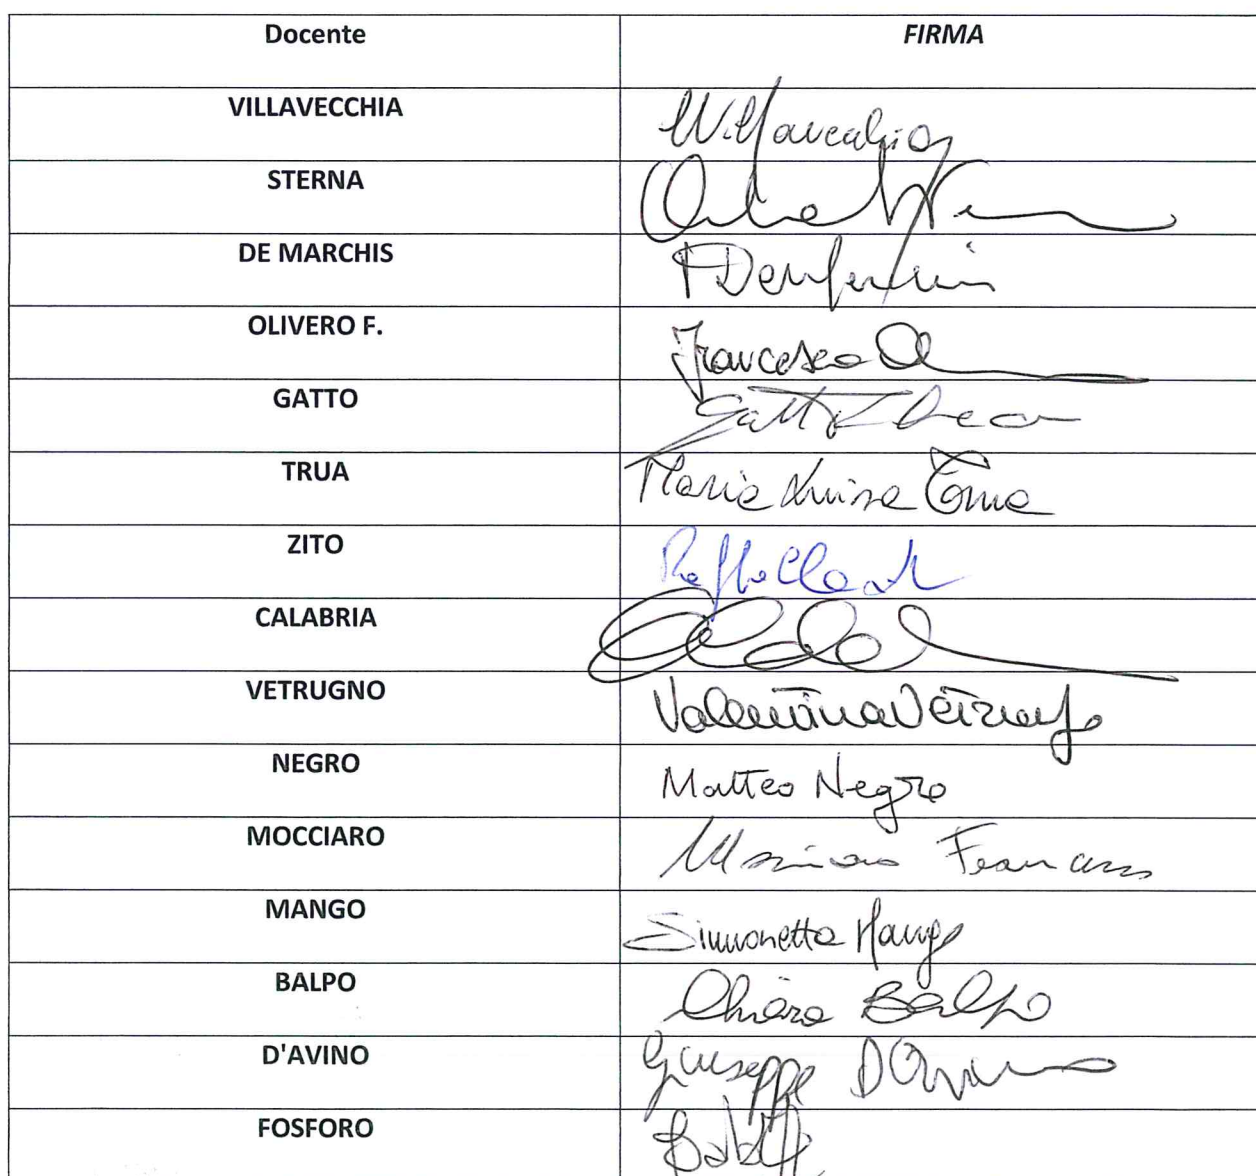 Docente FIRMA
VILLAVECCHIA Villavecchia
STERNA
DE MARCHIS
OLIVERO F. Francesca
GATTO Gatto
TRUA Maria Luisa Trua
ZITO Raffaella
CALABRIA
VETRUGNO Valentina Vetrugno
NEGRO Matteo Negro
MOCCIARO
MANGO Simonetta Mango
BALPO Chiara Balpo
D'AVINO Giuseppe D'Avino
FOSFORO